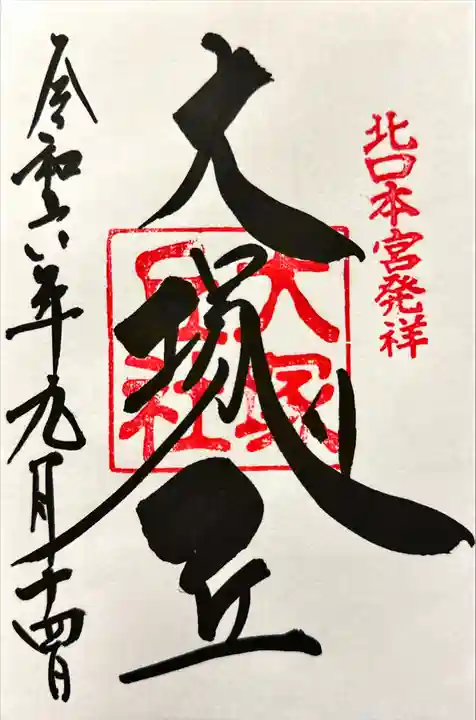 北口本宮発祥
大塚丘
大塚
丘社
令和六年九月十四日